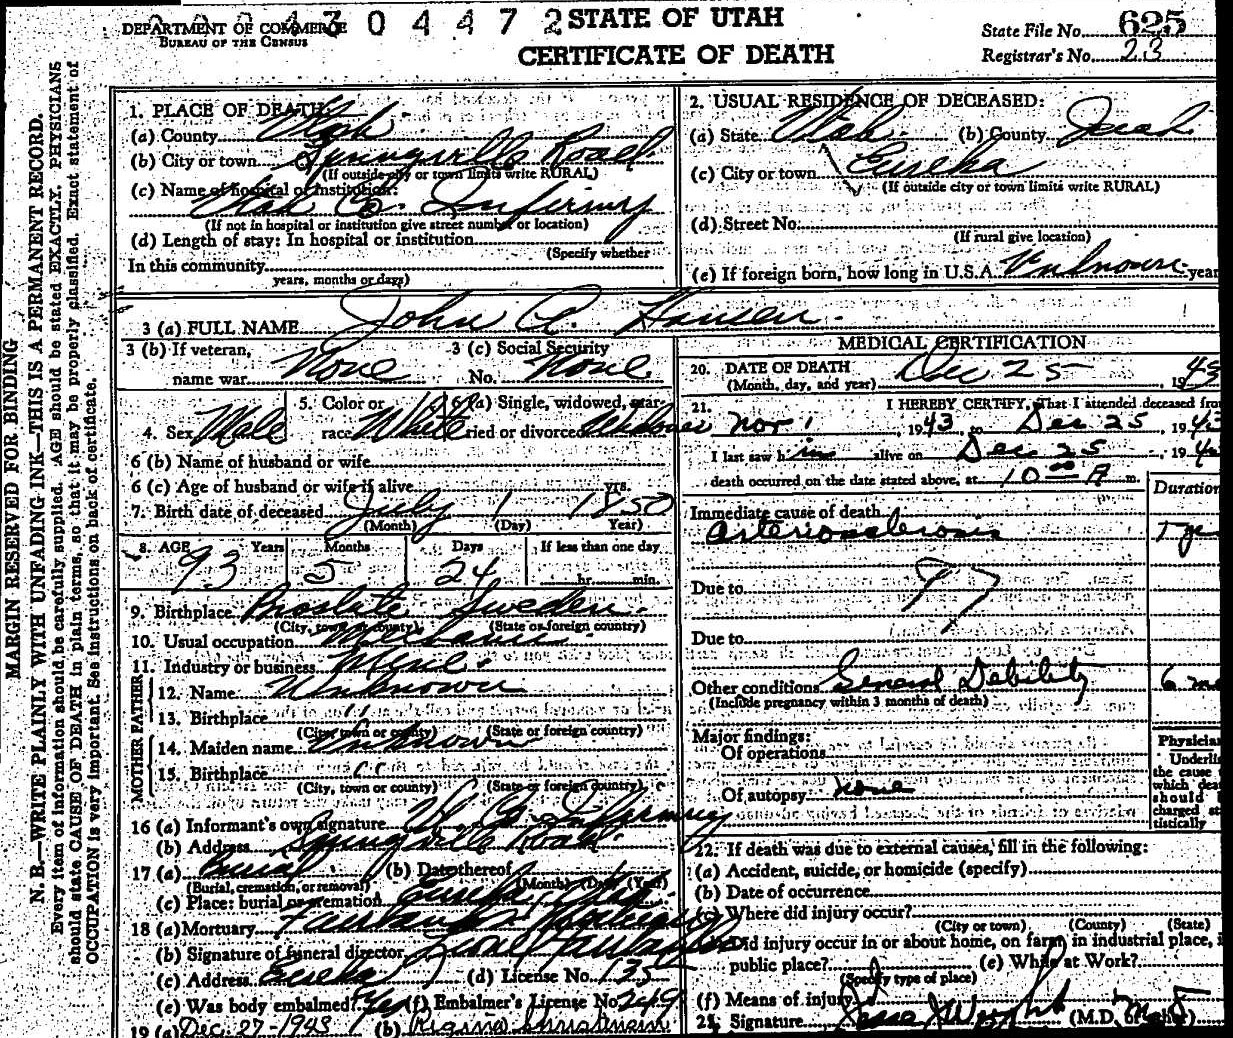 DEPARTMENT OF COMMERCE
BUREAU OF THE CENSUS
430 4472
STATE OF UTAH
CERTIFICATE OF DEATH
State File No. 625
Registrar's No. 23
MARGIN RESERVED FOR BINDING
N. B.—WRITE PLAINLY WITH UNFADING INK—THIS IS A PERMANENT RECORD.
Every item of information should be carefully supplied. AGE should be stated EXACTLY. PHYSICIANS
should state CAUSE OF DEATH in plain terms, so that it may be properly classified. Exact statement of
OCCUPATION is very important. See instructions on back of certificate.
1. PLACE OF DEATH:
(a) County Utah
(b) City or town Springville Road
(If outside city or town limits write RURAL)
(c) Name of hospital or institution:
Utah Co. Infirmry
(If not in hospital or institution give street number or location)
(d) Length of stay: In hospital or institution
(Specify whether
In this community
years, months or days)
2. USUAL RESIDENCE OF DECEASED:
(a) State Utah (b) County Juab
(c) City or town Eureka
(If outside city or town limits write RURAL)
(d) Street No.
(If rural give location)
(e) If foreign born, how long in U.S.A. Unknown year
3 (a) FULL NAME John A.
3 (b) If veteran,
name war None
3 (c) Social Security
No. None
4. Sex Male
5. Color or
race White
6 (a) Single, widowed, mar-
ried or divorced
6 (b) Name of husband or wife
6 (c) Age of husband or wife if alive yrs.
7. Birth date of deceased July 1 1850
(Month) (Day) Year)
8. AGE Years Months Days If less than one day
93 5 24 hr. min.
9. Birthplace Sweden
(City, town or county) (State or foreign country)
10. Usual occupation
11. Industry or business Mine
FATHER
12. Name Unknown
13. Birthplace " "
(City, town or county) (State or foreign country)
MOTHER
14. Maiden name Unknown
15. Birthplace " "
(City, town or county) (State or foreign country)
16 (a) Informant's own signature Ut. Co. Infirmry
(b) Address Springville Road
17 (a) Burial (b) Date thereof
(Burial, cremation, or removal) (Month) (Day) (Year)
(c) Place: burial or cremation Eureka, Utah
18 (a) Mortuary
(b) Signature of funeral director
(c) Address Eureka (d) License No. 135
(e) Was body embalmed? Yes (f) Embalmer's License No. 249
19 (a) Dec. 27-1943 (b)
MEDICAL CERTIFICATION
20. DATE OF DEATH
(Month, day, and year) Dec 25, 1943
21. I HEREBY CERTIFY, That I attended deceased from
Nov 1, 1943, to Dec 25, 1943
I last saw him alive on Dec 25, 194
death occurred on the date stated above, at 10 00 A m.
Duration
Immediate cause of death
arteriosclerosis
Due to 97
Due to
Other conditions General Debility 6 mo
(Include pregnancy within 3 months of death)
Major findings:
Of operations
Of autopsy none
Physician
Underli
the cause
which dea
should
charged st
tistically
22. If death was due to external causes, fill in the following:
(a) Accident, suicide, or homicide (specify)
(b) Date of occurrence
(c) Where did injury occur?
(City or town) (County) (State)
Did injury occur in or about home, on farm, in industrial place, i
public place? (e) While at Work?
(Specify type of place)
(f) Means of injury
23. Signature (M.D. or other)